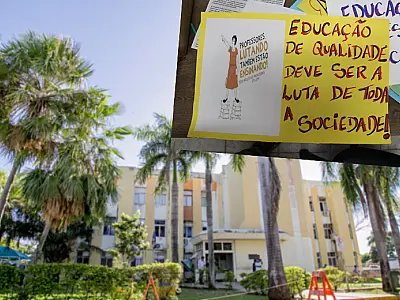 EDUCAÇ
PROFESSORES
LUTANDO
TAMBÉM ESTÃO
ENSINANDO!
EDUCAÇÃO
DE QUALIDADE
DEVE SER A
LUTA DE TODA
A SOCIEDADE!